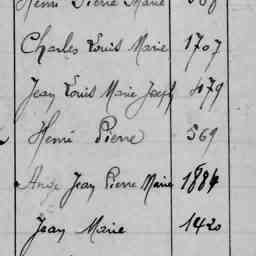 Henri Pierre Marie
Charles Louis Marie 1707
Jean Louis Marie Joseph 479
Henri Pierre 569
Ange Jean Pierre Marie 1884
Jean Marie 1420